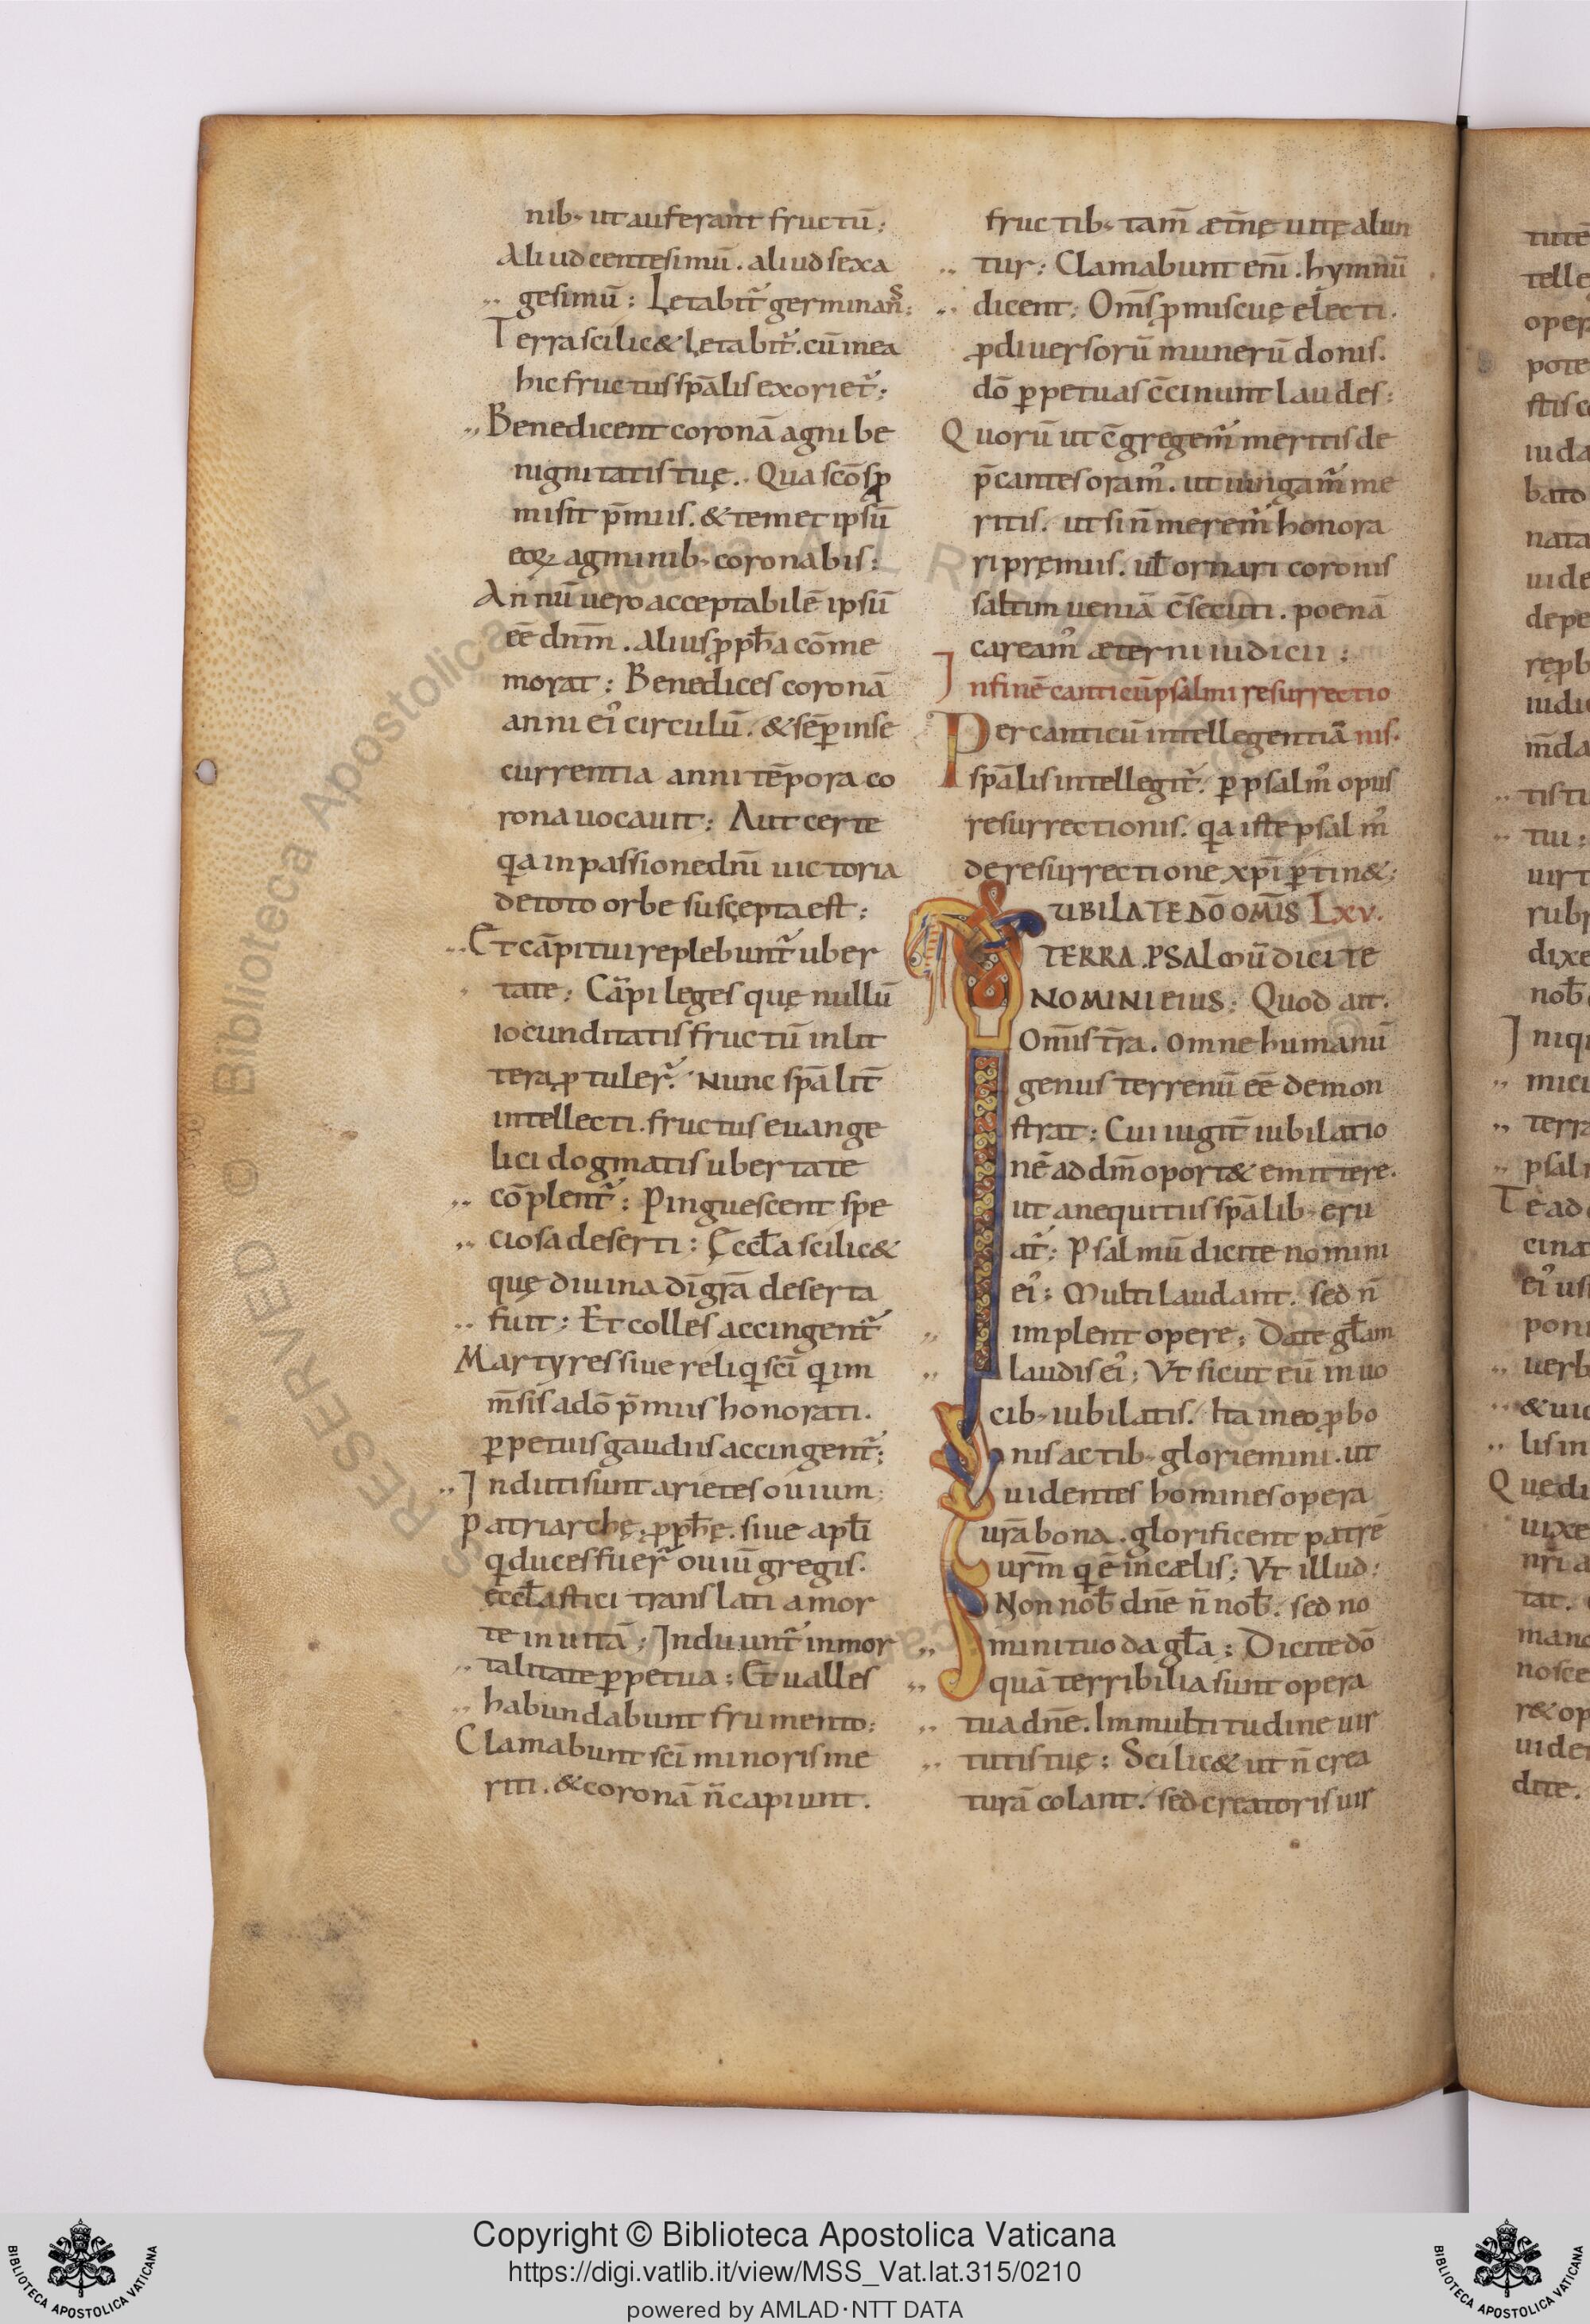 nib· ut auferant fructū;
Aliud centesimū. aliud sexa
gesimū: Lętabit᷑ germinans̄;
Terra scilic& lętabit᷑. cū in ea
hic fructus sp̄alis exoriet᷑;
Benedicent coronā agni be
nignitatis tuę. Qua scōs ꝓ
misit p̄miis. & temet ipsū
eoꝝ agminib· coronabis:
Annū uero acceptabilē ipsū
eē dnm̄. Alius ꝓpħa cōme
morat: Benedices coronā
anni ei᾽ circulū. & sēꝑ in se
currentia anni tēpora co
rona uocauit: Aut certe
q̄a in passione dn̄i uictoria
de toto orbe suscepta est:
Et cāpi tui replebunt᷑ uber
tate: Cāpi leges quę nullū
iocunditatis fructū in lit
tera ꝓtuler᷑. Nunc sp̄alit̄
intellecti. fructus euange
lici dogmatis ubertate
cōplent᷑: Pinguescent spe
ciosa deserti: Ęccƚa scilic&
quę diuina dī gr̄a deserta
fuit: Et colles accingent᷑
Martyres siue reliqi sc̄i qi im
m̄sis a dō p̄miis honorati.
ꝑpetuis gaudiis accingent᷑;
Induti sunt arietes ouium;
Patriarchę, ꝓpħę. siue apƚi
qi duces fuer᷑ ouiū gregis.
eccƚastici translati a mor
te in uitā; Induunt᷑ inmor
talitate ꝑpetua; Et ualles
habundabunt frumento:
Clamabunt sc̄i minoris me
riti. & coronā n̄ capiunt.
fructib· tam̄ æt̄nę uitę alun
tur: Clamabunt eni̅. hymnū
dicent; Om̄s ꝓmiscuę electi.
ꝓ diuersorū munerū donis.
dō ꝑpetuas c̄cinunt laudes:
Quorū ut c̄gregem᷑ meritis de
p̄cantes oram᾽. ut iungam᷑ me
ritis. ut si n̄ merem᷑ honora
ri pręmiis. uƚ ornari coronis
saltim ueniā c̄secuti. poenā
caream᾽ æterni iudicii:
In finē canticū psalmi resurrectio
Per canticū intellegentiā nis.
sp̄alis intellegit᷑. ꝑ psalm᾽ opus
resurrectionis. q̄a iste psalm᾽
de resurrectione xp̄i ꝑtin&;
IUBILATE DŌ OMĪS Lxv.
TERRA. PSALMŪ DICITE
NOMINI EIUS: Quod ait.
Omīs t̄ra. omne humanū
genus terrenū eē demon
strat: Cui iugit̄ iubilatio
nē ad dm̄ oport& emittere.
ut a nequitiis sp̄alib· eru
at᷑: Psalmū dicite nomini
ei᾽: Multi laudant. sed n̄
implent opere; Date gƚam
laudis ei᾽; Vt sicut eū in uo
cib· iubilatis. Ita in eo ꝓ bo
nis actib· gloriemini. ut
uidentes homines opera
urā bona. glorificent patrē
urm̄ qi ē in cælis; Vt illud:
Non nob̄ dnē n̄ nob̄. sed no
mini tuo da gƚa; Dicite dō
quā terribilia sunt opera
tua dn̄e. Im multitudine uir
tutis tuę: Scilic& ut n̄ crea
turā colant. sed creatoris uir
Copyright © Biblioteca Apostolica Vaticana
https://digi.vatlib.it/view/MSS_Vat.lat.315/0210
powered by AMLAD·NTT DATA